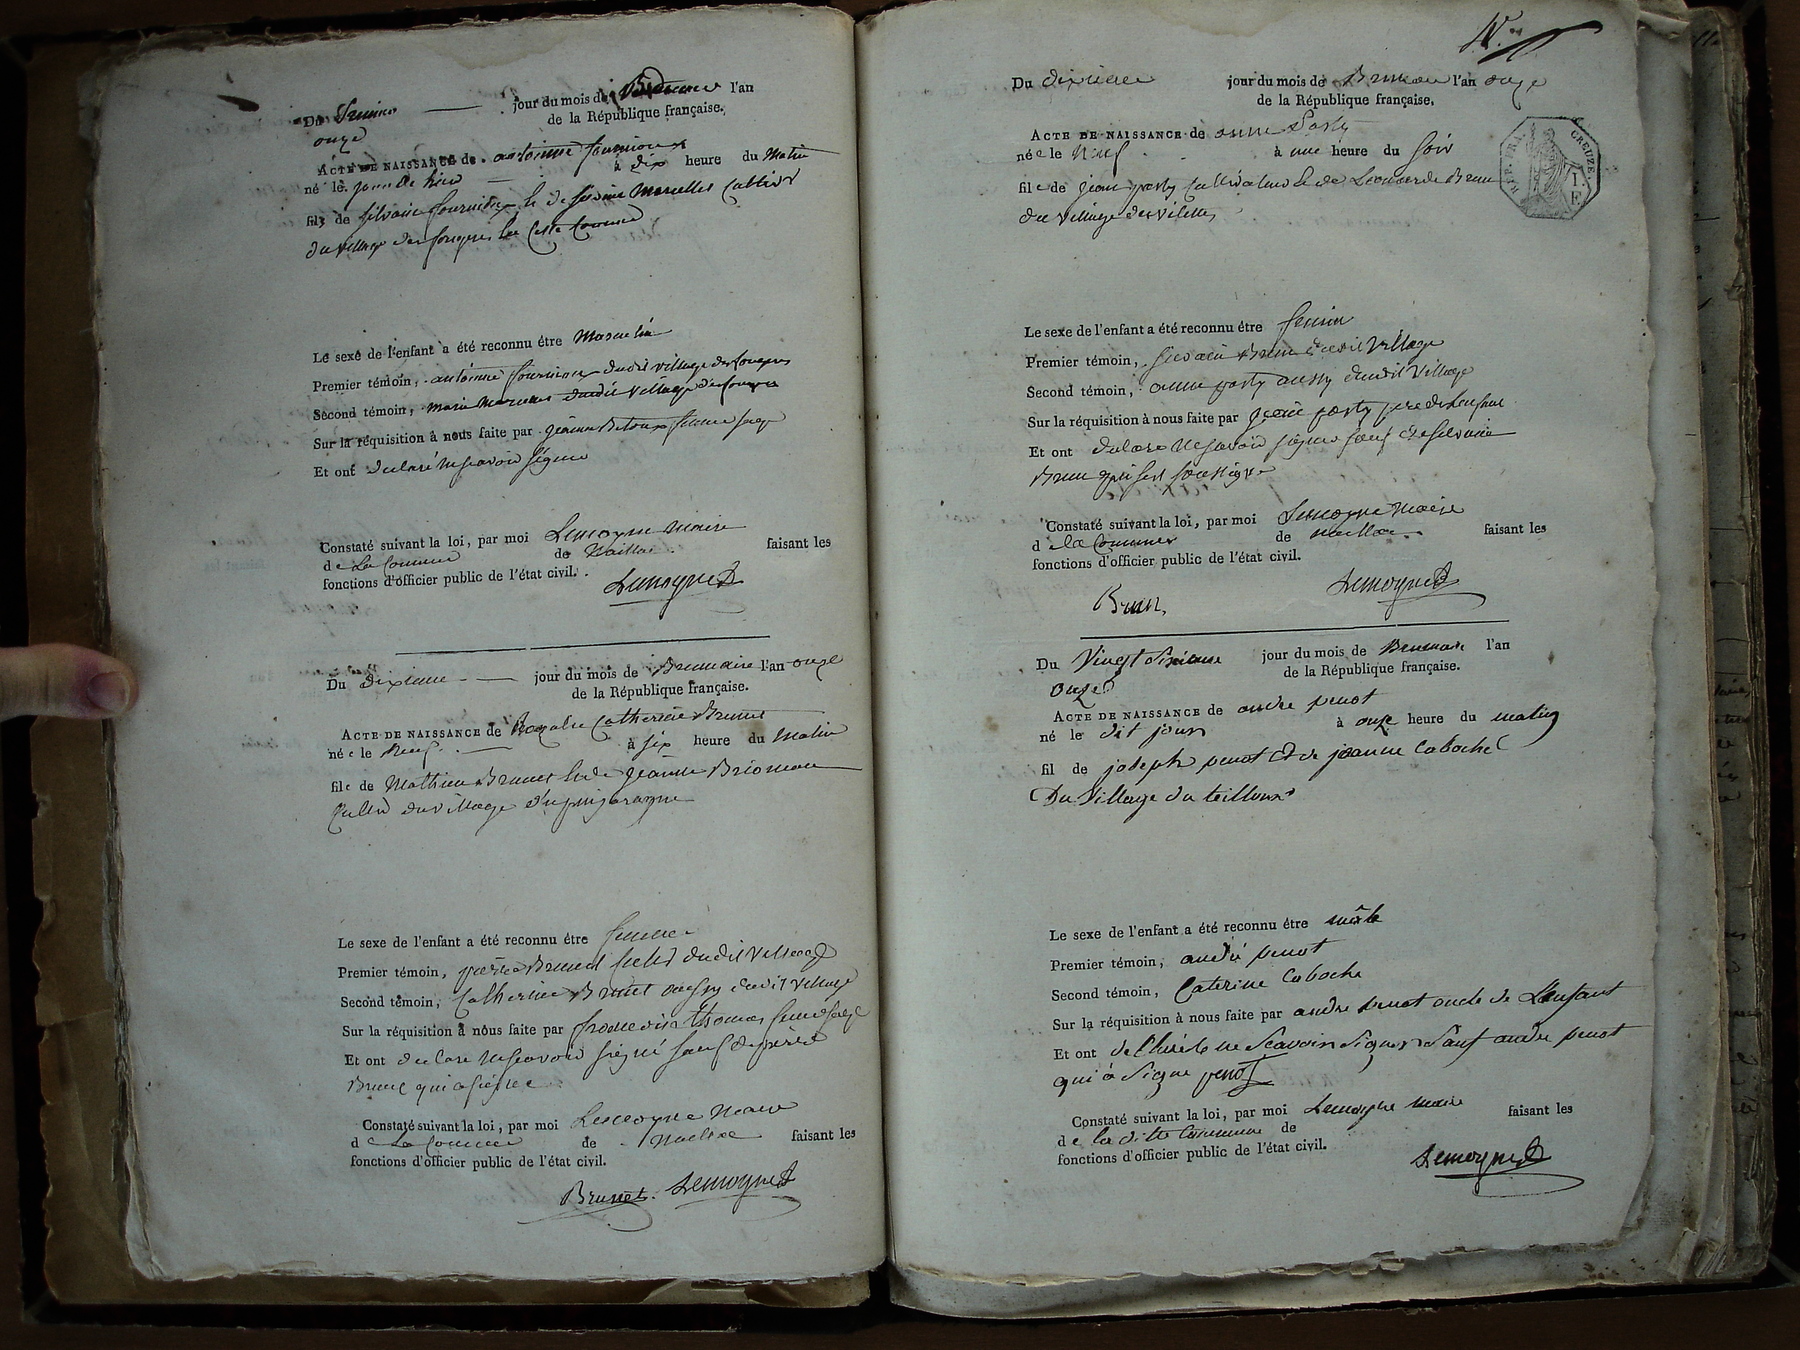 Du jour du mois de Brumaire l'an
onze de la République française.
ACTE DE NAISSANCE de antoinne fournioux
né le jour de hier à dix heure du Matin
fils de silvain fournioux &
du village des fougeres cette Commune
Le sexe de l'enfant a été reconnu être Masculin
Premier témoin, antoinne fournioux dudit village des fougeres
Second témoin, marie dudit village des fougeres
Sur la réquisition à nous faite par jeanne femme sage
Et ont declaré ne savoir signer
Constaté suivant la loi, par moi Lemoyne Maire
de La Commune de Naillac faisant les
fonctions d'officier public de l'état civil.
Lemoyne
Du dixieme jour du mois de Brumaire l'an onze
de la République française.
ACTE DE NAISSANCE de Catherine Brunet
née le neuf à six heure du Matin
file de Mathieu Brunet & de jeanne
du village
Le sexe de l'enfant a été reconnu être
Premier témoin, pierre Brunet dudit village
Second témoin, Catherine Brunet aussy dudit village
Sur la réquisition à nous faite par thomas femme sage
Et ont declaré ne savoir signé sauf pierre
Brunet qui a signé
Constaté suivant la loi, par moi Lemoyne Maire
de La Commune de Naillac faisant les
fonctions d'officier public de l'état civil.
Brunet. Lemoyne
Du dixieme jour du mois de Brumaire l'an onze
de la République française.
REP. FRA. CREUZE.
1 F.
ACTE DE NAISSANCE de anne Pasty
née le Neuf à une heure du soir
file de jean pasty & de Leonarde Brun
du village des
Le sexe de l'enfant a été reconnu être feminin
Premier témoin, silvain Brun dudit Village
Second témoin, anne pasty aussy dudit Village
Sur la réquisition à nous faite par pasty pere de Lenfant
Et ont declaré ne savoir signer sauf silvain
Brun qui sest soussigné
Constaté suivant la loi, par moi Lemoyne Maire
de la Commune de Naillac faisant les
fonctions d'officier public de l'état civil.
Brun, Lemoyne
Du Vingt Sixieme jour du mois de Brumaire l'an
onze de la République française.
ACTE DE NAISSANCE de andre penot
né le dit jour à onze heure du matin
fil de joseph penot et de jeanne Caboche
Du Village du teilloux
Le sexe de l'enfant a été reconnu être mâle
Premier témoin, andré penot
Second témoin, Caterine Caboche
Sur la réquisition à nous faite par andre penot oncle de L'enfant
Et ont ne Scavoir Signer Sauf andre penot
qui à Signe penot
Constaté suivant la loi, par moi Lemoyne maire
de la ditte Commune de faisant les
fonctions d'officier public de l'état civil.
Lemoyne